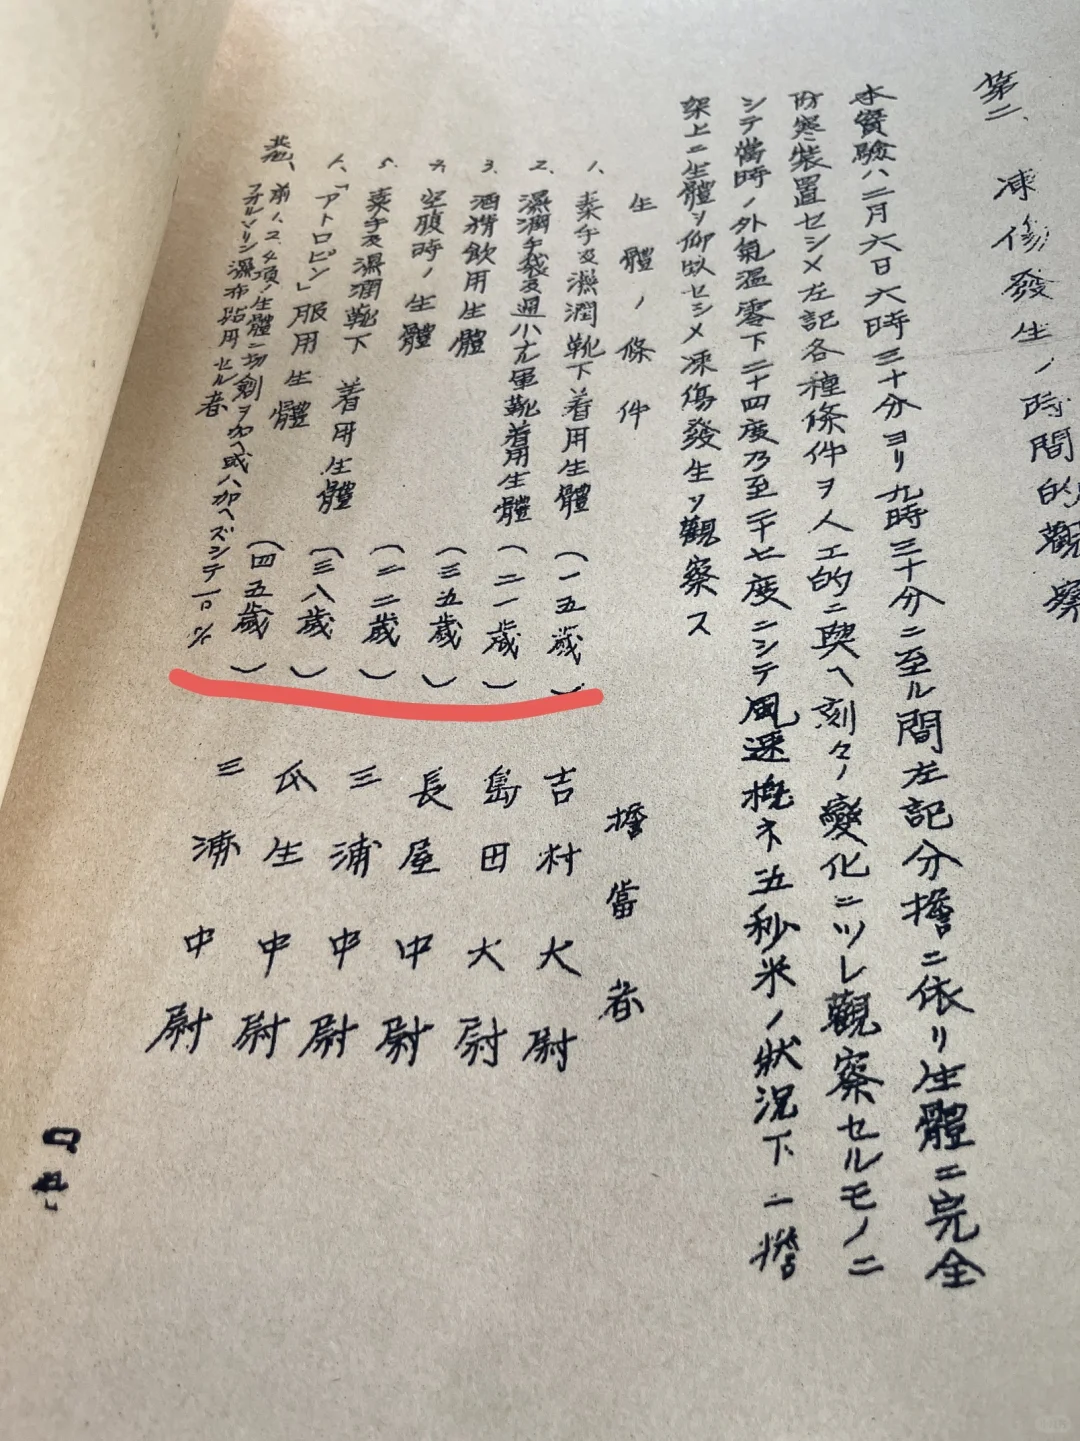 第二、凍傷發生ノ時間的觀察
本實驗ハ二月六日六時三十分ヨリ九時三十分ニ至ル間左記分擔ニ依リ生體ニ完全
防寒裝置セシメ左記各種條件ヲ人工的ニ與ヘ刻々ノ變化ニツレ觀察セルモノニ
シテ當時ノ外氣溫零下二十四度乃至二十七度ニシテ風速概ネ五秒米ノ狀況下ニ擔
架上ニ生體ヲ仰臥セシメ凍傷發生ヲ觀察ス
生體ノ條件 擔當者
1、素手及濕潤靴下着用生體 (一五歲) 吉村大尉
2、濕潤手袋及過小ナル軍靴着用生體 (二一歲) 島田大尉
3、酒精飲用生體 (三五歲) 長屋中尉
4、空腹時ノ生體 (二二歲) 三浦中尉
5、素手及濕潤靴下着用生體 (三八歲) 瓜生中尉
6、「アトロピン」服用生體 (四五歲) 三浦中尉
前ノ2.4項ノ生體ニ切創ヲ加ヘ或ハ加ヘズシテ一〇%
フォルマリン濕布貼用セル者